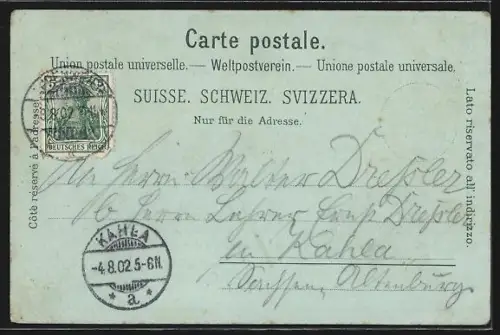 Carte postale.
Union postale universelle. — Weltpostverein. — Unione postale universale.
SUISSE. SCHWEIZ. SVIZZERA.
Nur für die Adresse.
Côté réservé à l'adresse.
Lato riservato all' indirizzo.
8.02
DEUTSCHES REICH
An Herrn Walter Dreßler
b/ Herrn Lehrer Ernst Dreßler
in Kahla
Sachsen Altenburg
KAHLA
-4.8.02.5-6N.
* a. *